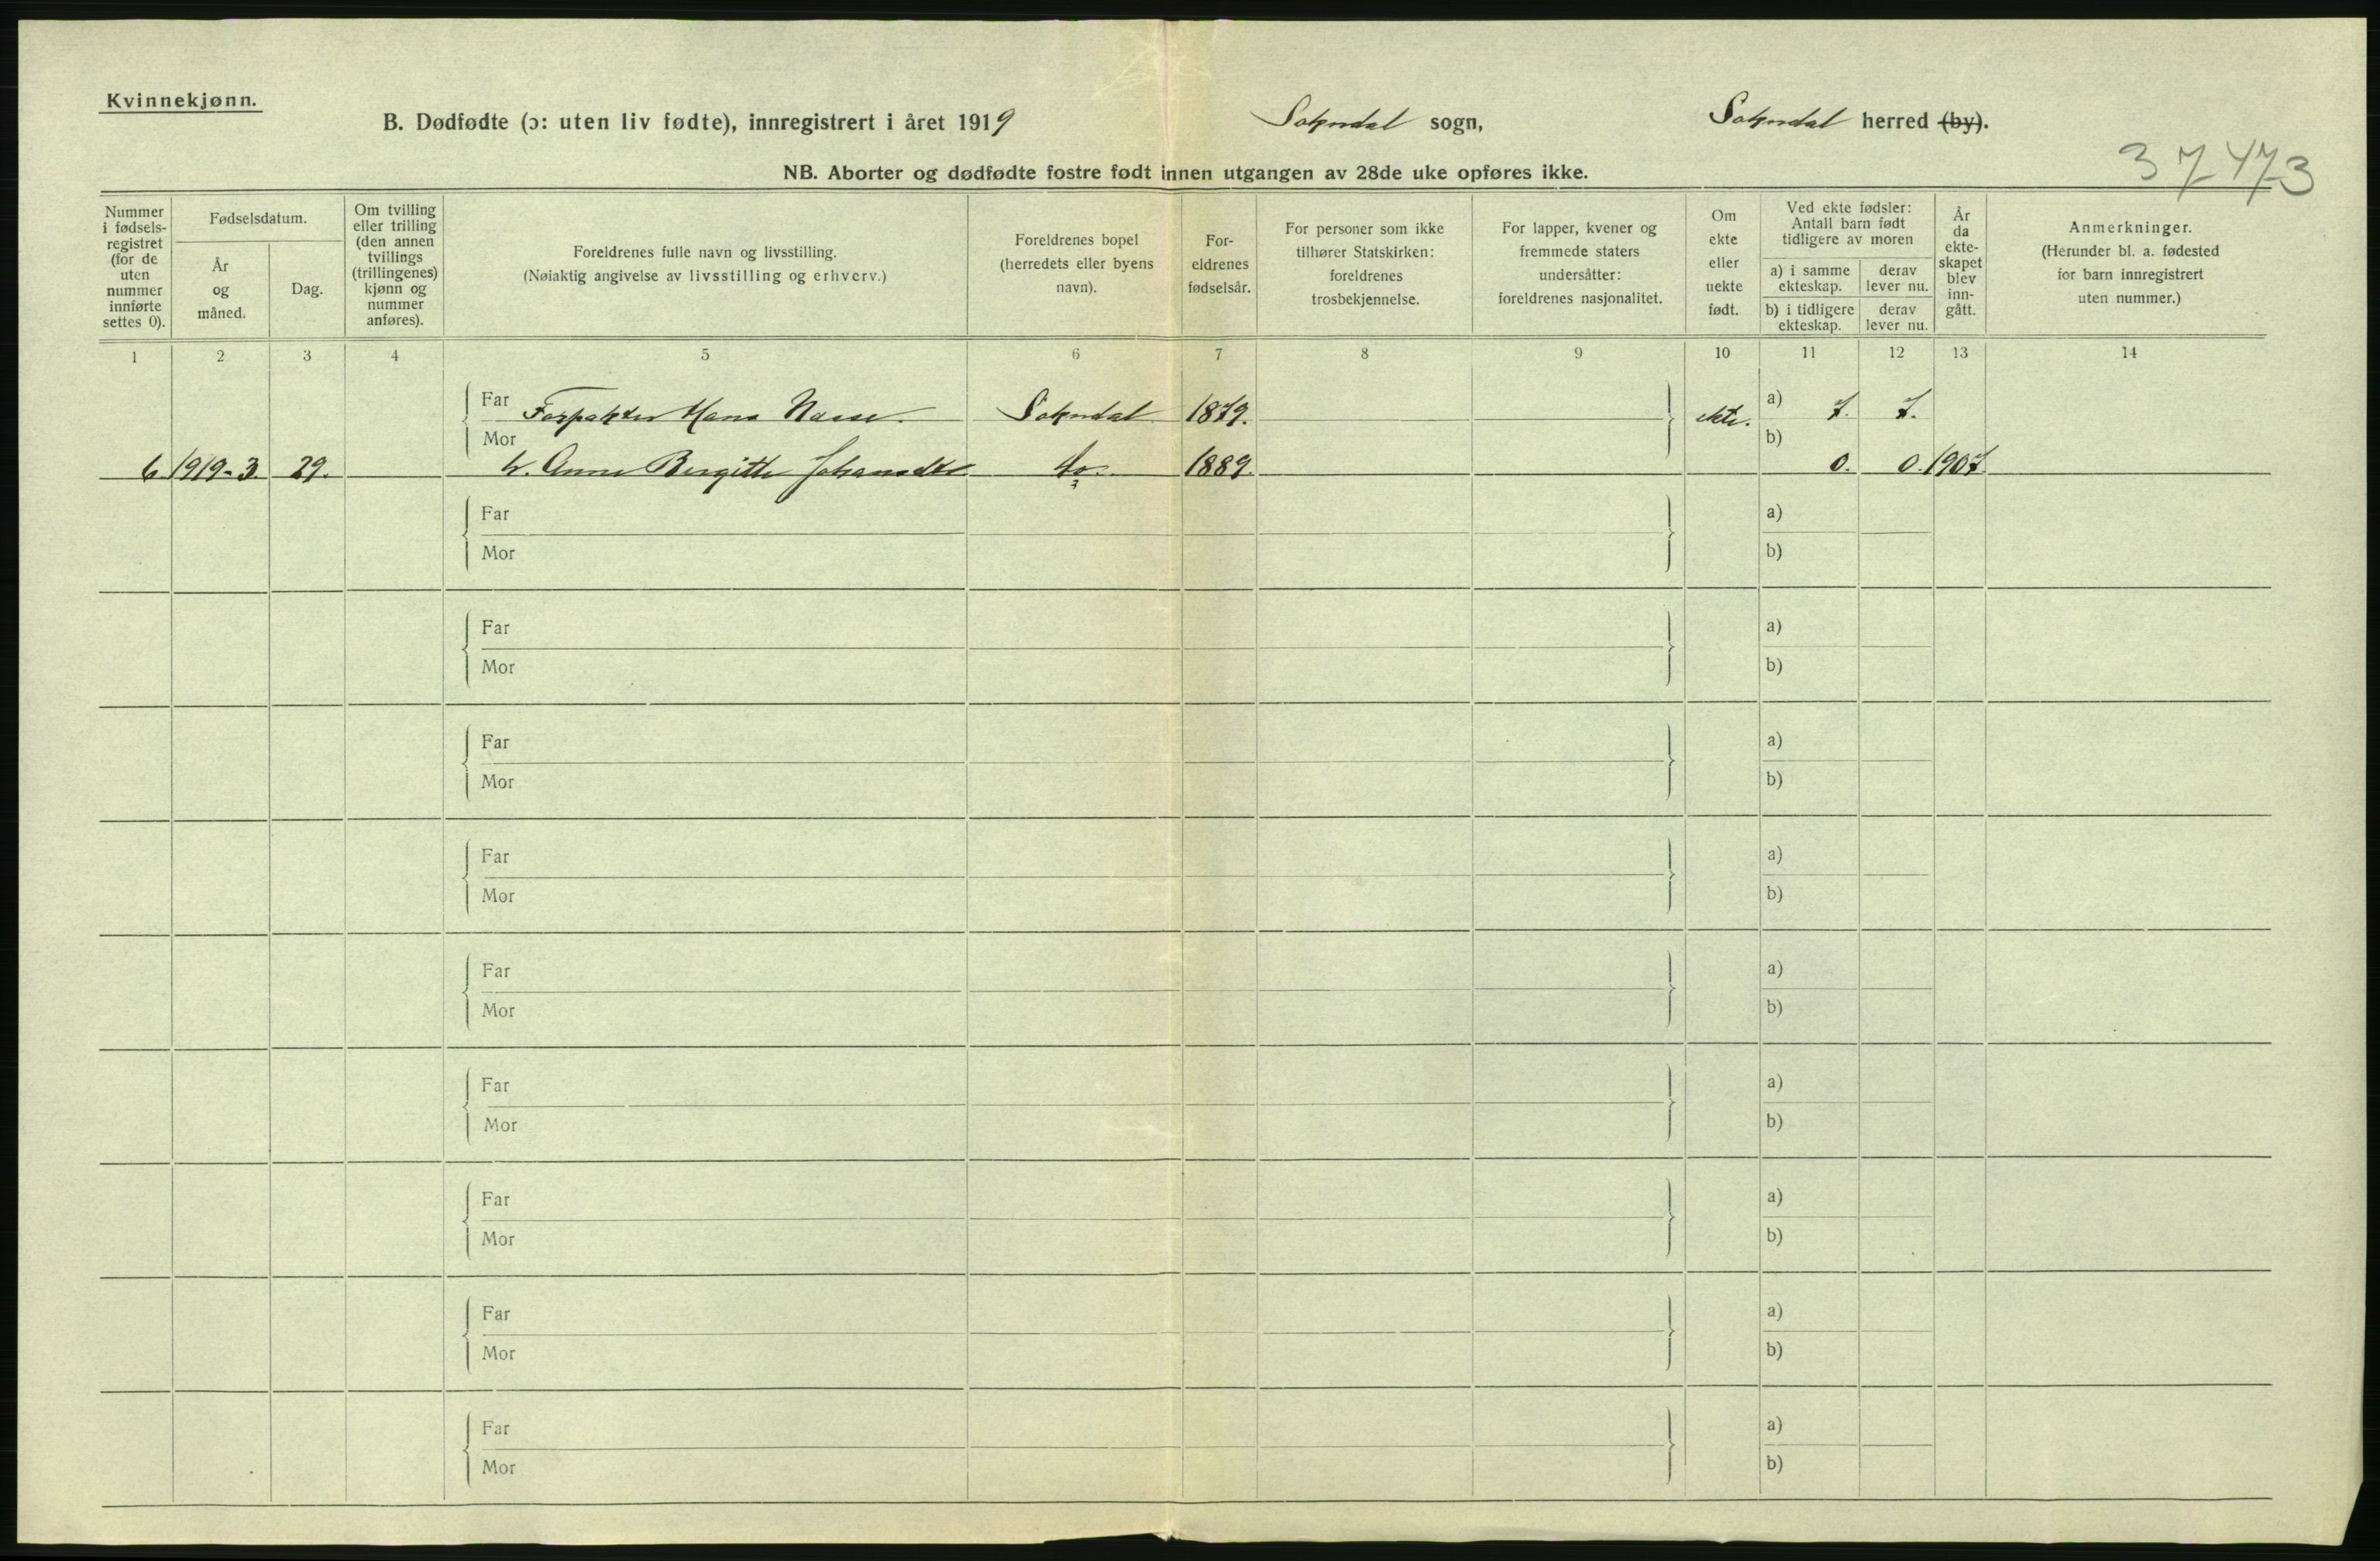 Kvinnekjønn.
B. Dødfødte (ɔ: uten liv fødte), innregistrert i året 1919 Sokndal sogn, Sokndal herred (by).
37473
NB. Aborter og dødfødte fostre født innen utgangen av 28de uke opføres ikke.
Nummer i fødsels-registret (for de uten nummer innførte settes 0).
Fødselsdatum.
År og måned.
Dag.
Om tvilling eller trilling (den annen tvillings (trillingenes) kjønn og nummer anføres).
Foreldrenes fulle navn og livsstilling.
(Nøiaktig angivelse av livsstilling og erhverv.)
Foreldrenes bopel (herredets eller byens navn).
For-eldrenes fødselsår.
For personer som ikke tilhører Statskirken: foreldrenes trosbekjennelse.
For lapper, kvener og fremmede staters undersåtter: foreldrenes nasjonalitet.
Om ekte eller uekte født.
Ved ekte fødsler: Antall barn født tidligere av moren
a) i samme ekteskap.
derav lever nu.
b) i tidligere ekteskap.
derav lever nu.
År da ekte-skapet blev inn-gått.
Anmerkninger.
(Herunder bl. a. fødested for barn innregistrert uten nummer.)
1 2 3 4 5 6 7 8 9 10 11 12 13 14
Far Forpakter Hans Sokndal 1879. ekte. a) 7. 7.
6. 1919-3. 29. Mor h. Anne Bergitte Johansdtr do. 1889. b) 0. 0. 1907
Far a)
Mor b)
Far a)
Mor b)
Far a)
Mor b)
Far a)
Mor b)
Far a)
Mor b)
Far a)
Mor b)
Far a)
Mor b)
Far a)
Mor b)
Far a)
Mor b)